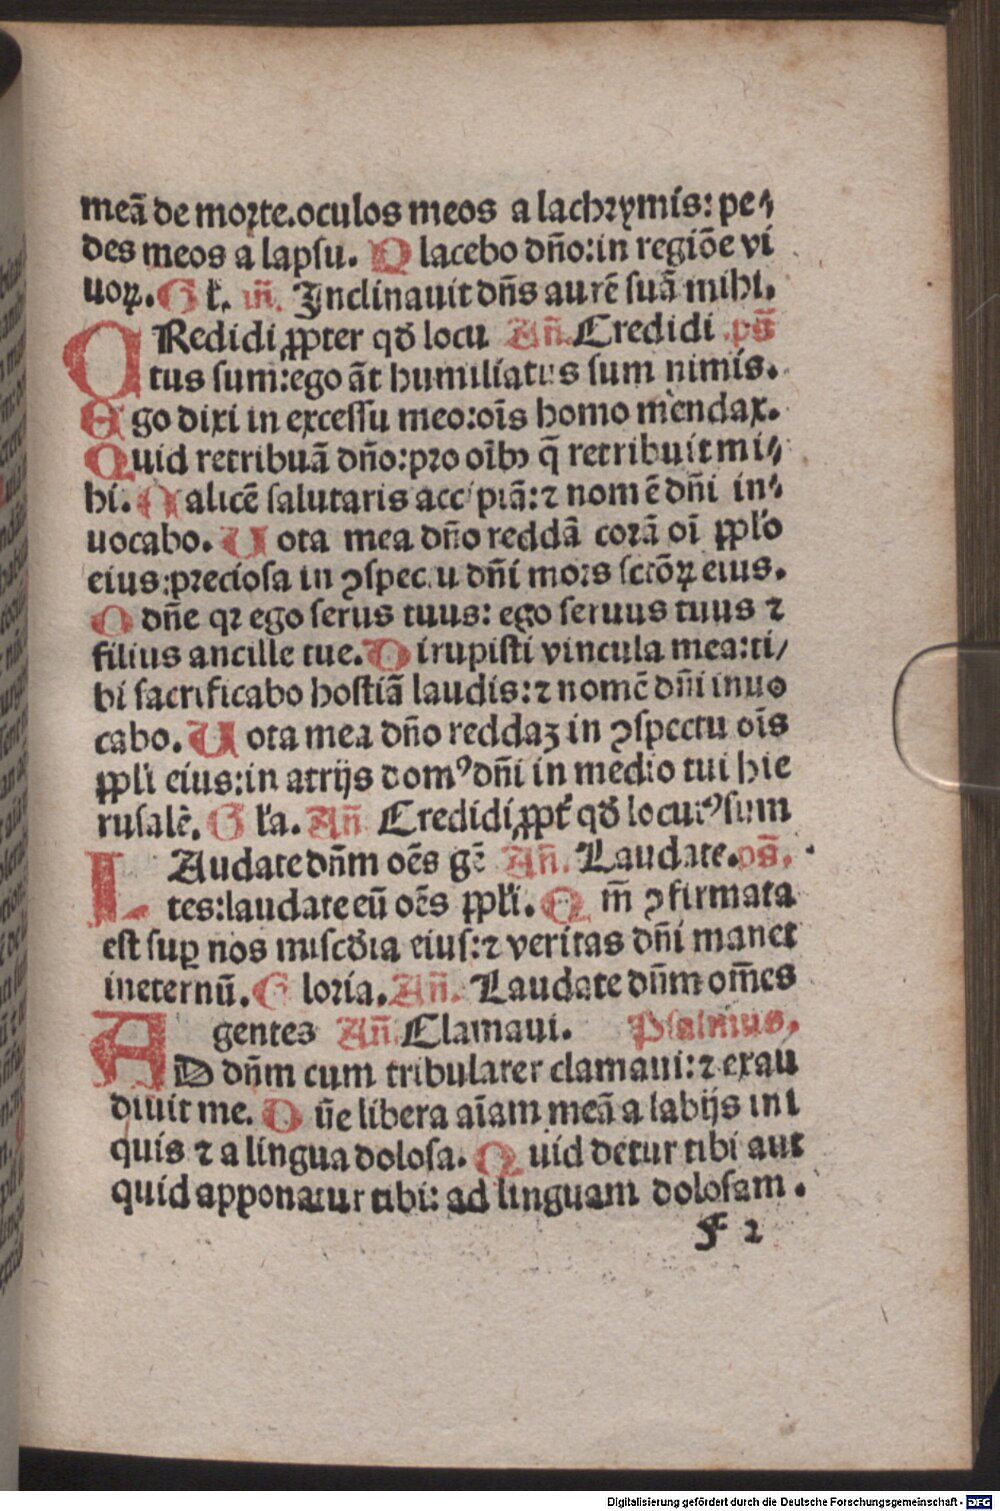 meã de morte.oculos meos a lachrymis: pe⸗
des meos a lapsu. P lacebo dño:in regiõe vi
uoꝝ. G ľ. iñ. Inclinauit dñs aurẽ suã mihi.
C Redidi ꝓpter qđ locu Añ. Credidi .ps̃
tus sum:ego ãt humiliatus sum nimis.
E go dixi in excessu meo:oĩs homo mendax.
Q uid retribuã dño:pro oĩbꝫ q̃ retribuit mi⸗
hi. C alicẽ salutaris accipiã:⁊ nomẽ dñi in⸗
uocabo. U ota mea dño reddã corã oĩ ꝓpľo
eius:preciosa in ꝯspectu dñi mors sctõꝝ eius.
O dñe qꝛ ego serus tuus: ego seruus tuus ⁊
filius ancille tue. D irupisti vincula mea:ti/
bi sacrificabo hostiã laudis:⁊ nomẽ dñi inuo
cabo. U ota mea dño reddaꝫ in ꝯspectu oĩs
ꝓpľi eius:in atrijs domꝰ dñi in medio tui hie
rusalẽ. G ľa. Añ Credidi ꝓpt̃ qđ locutꝰ sum
L Audate dñm oẽs gẽ Añ. Laudate.ps̃.
tes:laudate eũ oẽs ꝓpľi. Q m̃ ꝯfirmata
est suꝑ nos miscđia eius:⁊ veritas dñi manet
ineternũ. G loria. Añ. Laudate dñm om̃es
gentes Añ. Clamaui. Psalmus.
A D dñm cum tribularer clamaui:⁊ exau
diuit me. D ñe libera aĩam meã a labijs ini
quis ⁊ a lingua dolosa. Q uid detur tibi aut
quid apponatur tibi: ad linguam dolosam.
f 2
Digitalisierung gefördert durch die Deutsche Forschungsgemeinschaft - DFG